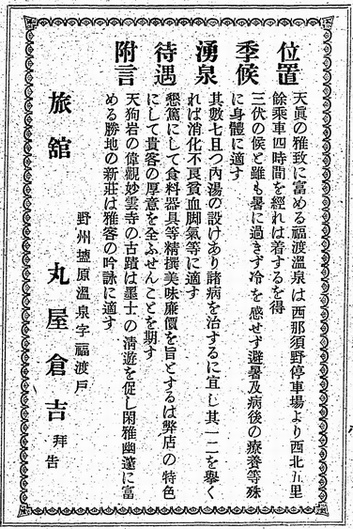 位置
天眞の雅致に富める福渡溫泉は西那須野停車場より西北五里
餘乘車四時間を經れは着するを得
季候
三伏の候と雖も暑に過きず冷を感せず避暑及病後の療養等殊
に身體に適す
湧泉
其數七且つ內湯の設けあり諸病を治するに宜し其一二を擧く
れば消化不良貧血脚氣等に適す
待遇
懇篤にして食料器具等精撰美味廉價を旨とするは弊店の特色
にして貴客の厚意を全ふせんことを期す
附言
天狗岩の偉觀妙雲寺の古蹟は墨士の淸遊を促し閑雅幽邃に富
める勝地の新莊は雅客の吟詠に適す
野州塩原溫泉字福渡戶
旅舘 丸屋倉吉 拜告